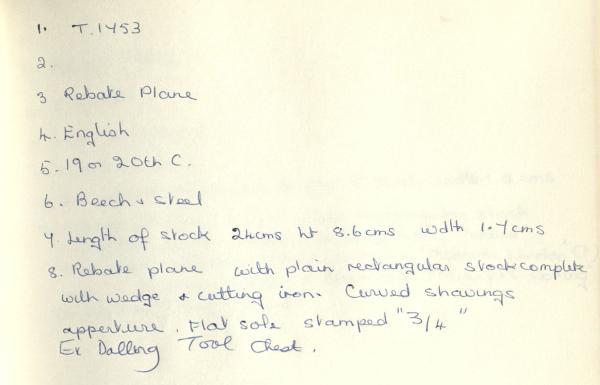 1. T.1453
2.
3 Rebate Plane
4. English
5. 19 or 20th C.
6. Beech & steel
7. Length of stock 24cms ht 8.6cms wdth 1.7cms
8. Rebate plane with plain rectangular stock complete
with wedge & cutting iron. Curved shavings
apperture. Flat sole stamped "3/4"
Ex Dalling Tool Chest.